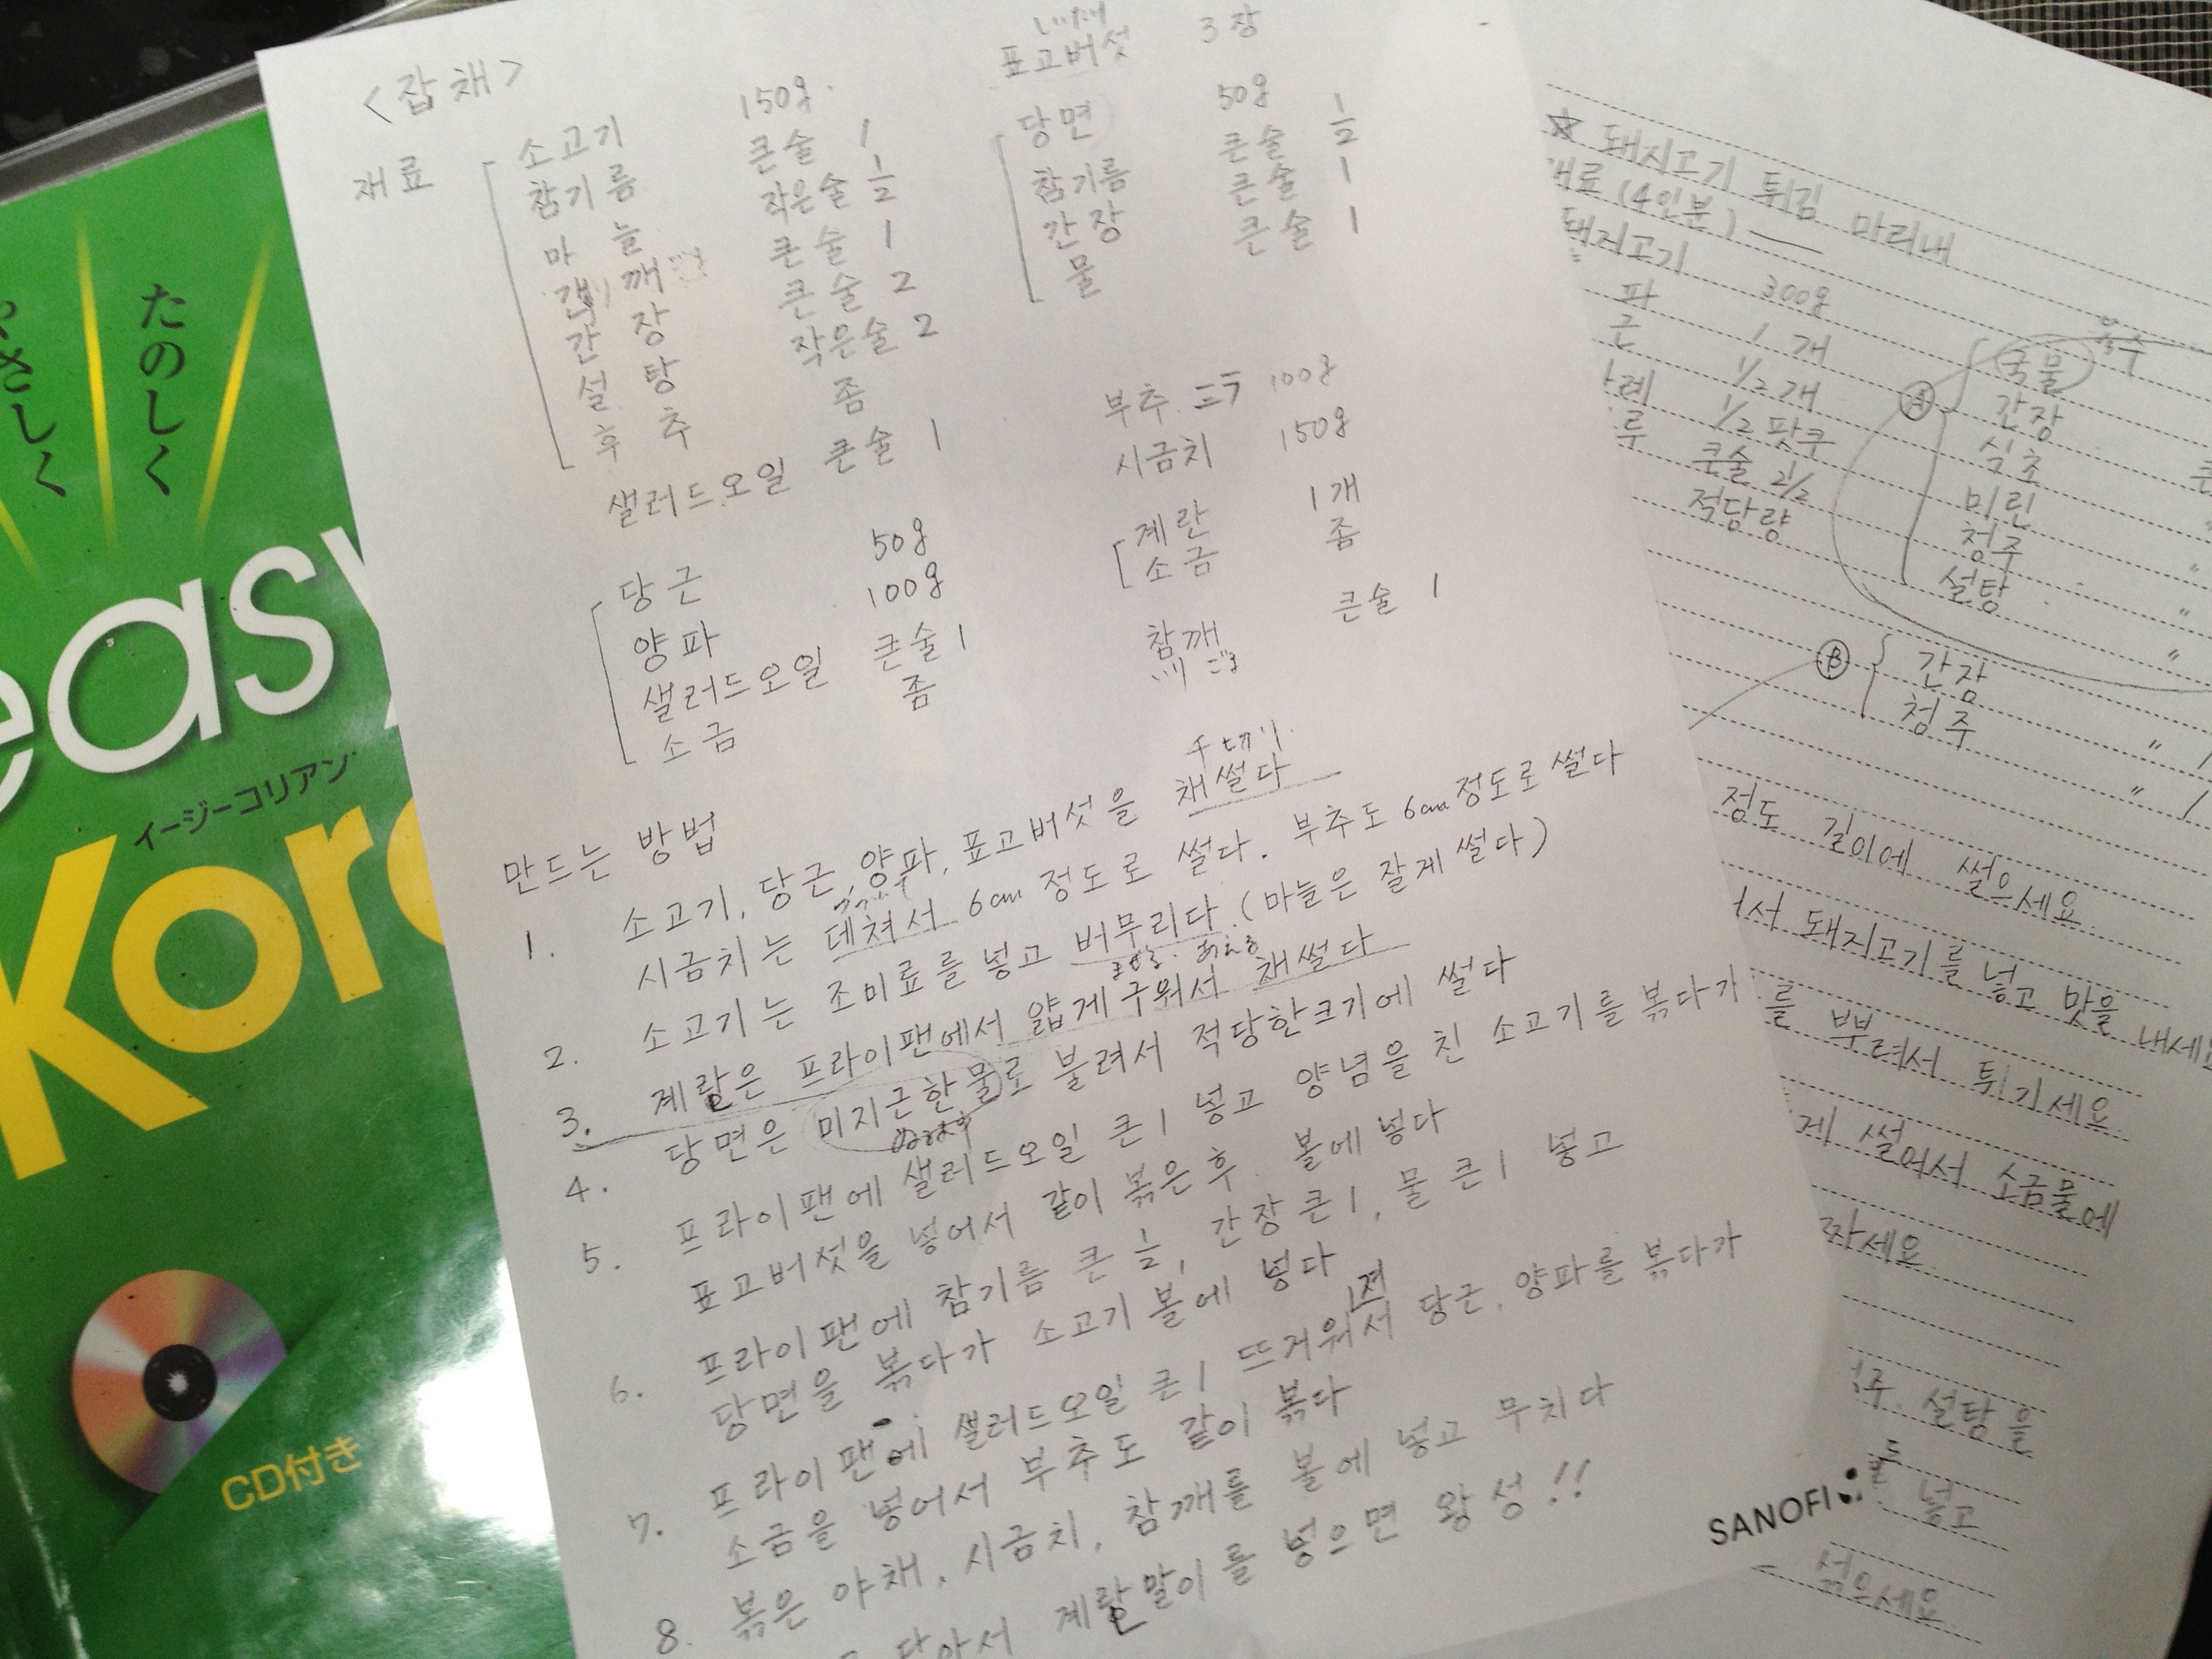 <잡채>
재료
소고기 150g
참기름 큰술 1
마늘 작은술 1/2
깨 큰술 1
간장 큰술 2
설탕 작은술 2
후추 좀
샐러드오일 큰술 1
당근 50g
양파 100g
샐러드오일 큰술 1
소금 좀
しいたけ
표고버섯 3장
당면 50g
참기름 큰술 1/2
간장 큰술 1
물 큰술 1
부추 ニラ 100g
시금치 150g
계란 1개
소금 좀
참깨 큰술 1
いりごま
만드는 방법
千切り
1. 소고기, 당근, 양파, 표고버섯을 채썰다
시금치는 데쳐서 6cm 정도로 썰다. 부추도 6cm 정도로 썰다
2. 소고기는 조미료를 넣고 버무리다. (마늘은 잘게 썰다)
まぜる. あえる
3. 계란은 프라이팬에서 얇게 구워서 채썰다
4. 당면은 미지근한물로 불려서 적당한크기에 썰다
ぬるま湯
5. 프라이팬에 샐러드오일 큰1 넣고 양념을 친 소고기를 볶다가
표고버섯을 넣어서 같이 볶은후 볼에 넣다
6. 프라이팬에 참기름 큰 1/2, 간장 큰1, 물 큰1 넣고
당면을 볶다가 소고기 볼에 넣다
져
7. 프라이팬에 샐러드오일 큰1 뜨거워서 당근, 양파를 볶다가
소금을 넣어서 부추도 같이 볶다
8. 볶은 야채, 시금치, 참깨를 볼에 넣고 무치다
담아서 계란말이를 넣으면 왕성!!
SANOFI
☆ 돼지고기 튀김 마리내
재료 (4인분)
돼지고기 300g
파 1개
근 1/2개
1/2 팟쿠
큰술 2 1/2
적당량
Ⓐ
국물
육수
간장
식초
미린
청주
설탕
Ⓑ
간장
청주
정도 길이에 썰으세요
서 돼지고기를 넣고 맛을 내세요
를 뿌려서 튀기세요
게 썰어서 소금물에
짜세요
주. 설탕을
넣고
섞으세요
たのしく
やさしく
easy
イージーコリアン
Kore
CD付き